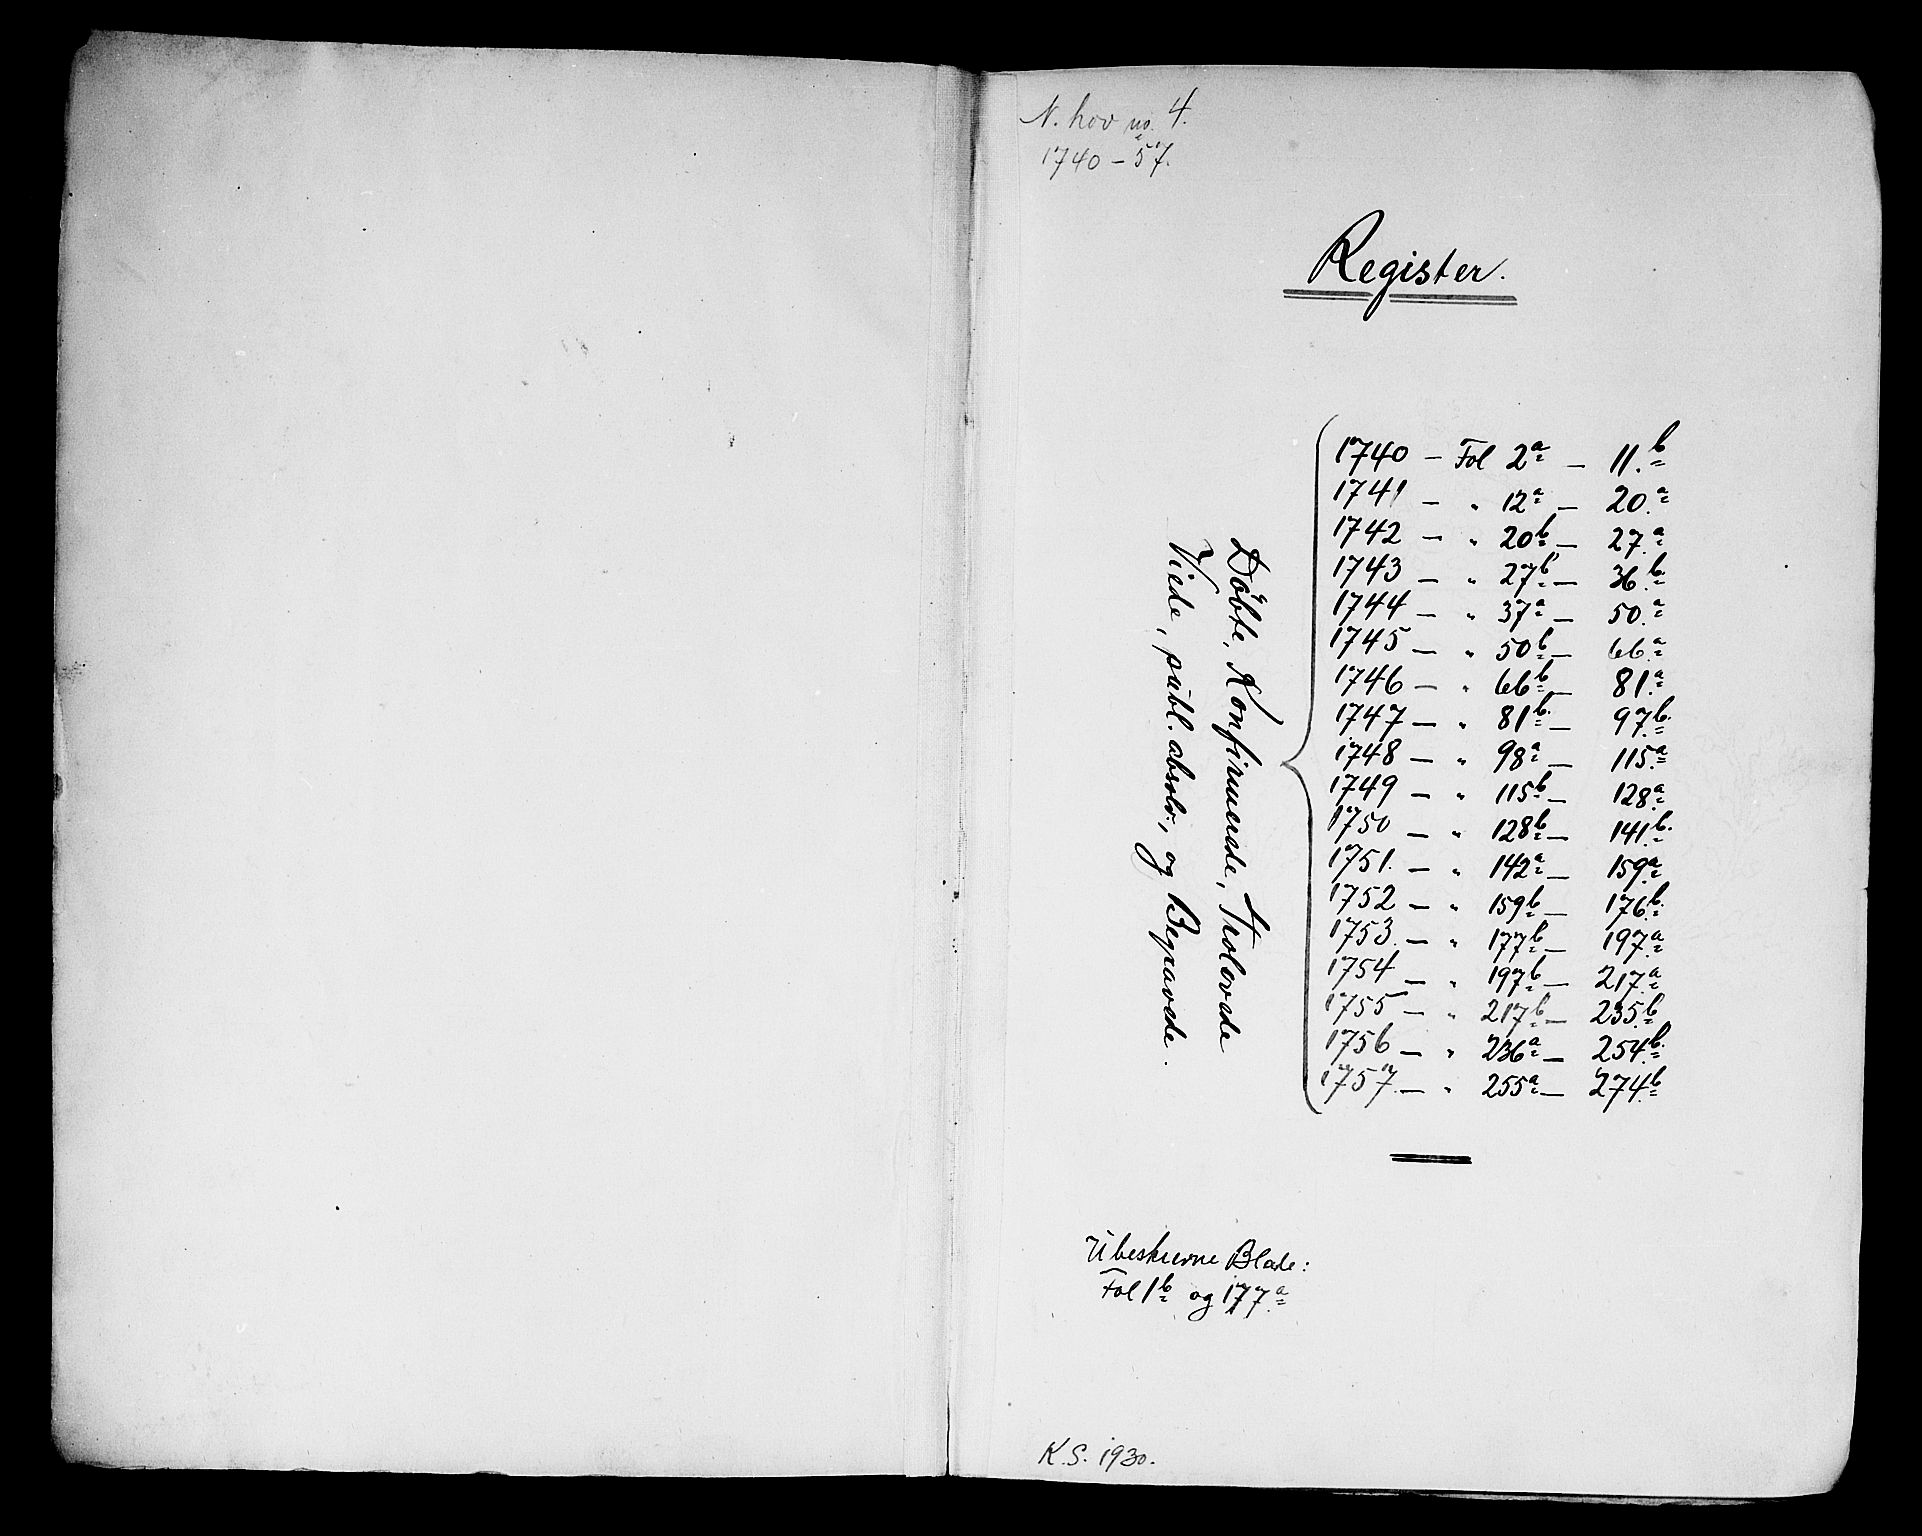 N. hov no. 4.
1740 – 57.
Register.
Döbte, Konfirmerede, Trolovede
Viede, publ. absolv., og Begravede.
1740 – Fol 2a – 11.b
1741 – " 12a – 20.a
1742 – " 20b – 27.a
1743 – " 27b – 36.b
1744 – " 37a – 50.a
1745 – " 50b – 66.a
1746 – " 66b – 81.a
1747 – " 81b – 97.b
1748 – " 98a – 115.a
1749 – " 115b – 128.a
1750 – " 128b – 141.b
1751. – " 142a – 159.a
1752 – " 159b – 176.b
1753. – " 177b – 197.a
1754 – " 197b – 217.a
1755 – " 217b – 235.b
1756 – " 236a – 254.b
1757. – " 255a – 274.b
Ubeskrevne Blade:
Fol 1b og 177.a
K.S. 1930.